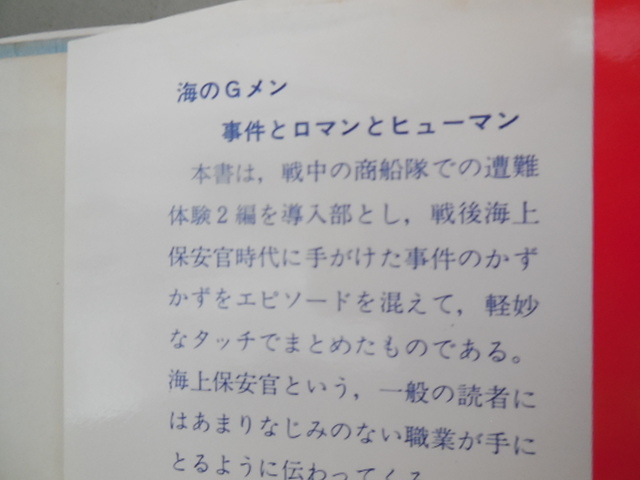 海のGメン
事件とロマンとヒューマン
本書は，戦中の商船隊での遭難
体験2編を導入部とし，戦後海上
保安官時代に手がけた事件のかず
かずをエピソードを混えて，軽妙
なタッチでまとめたものである。
海上保安官という，一般の読者に
はあまりなじみのない職業が手に
とるように伝わってくる